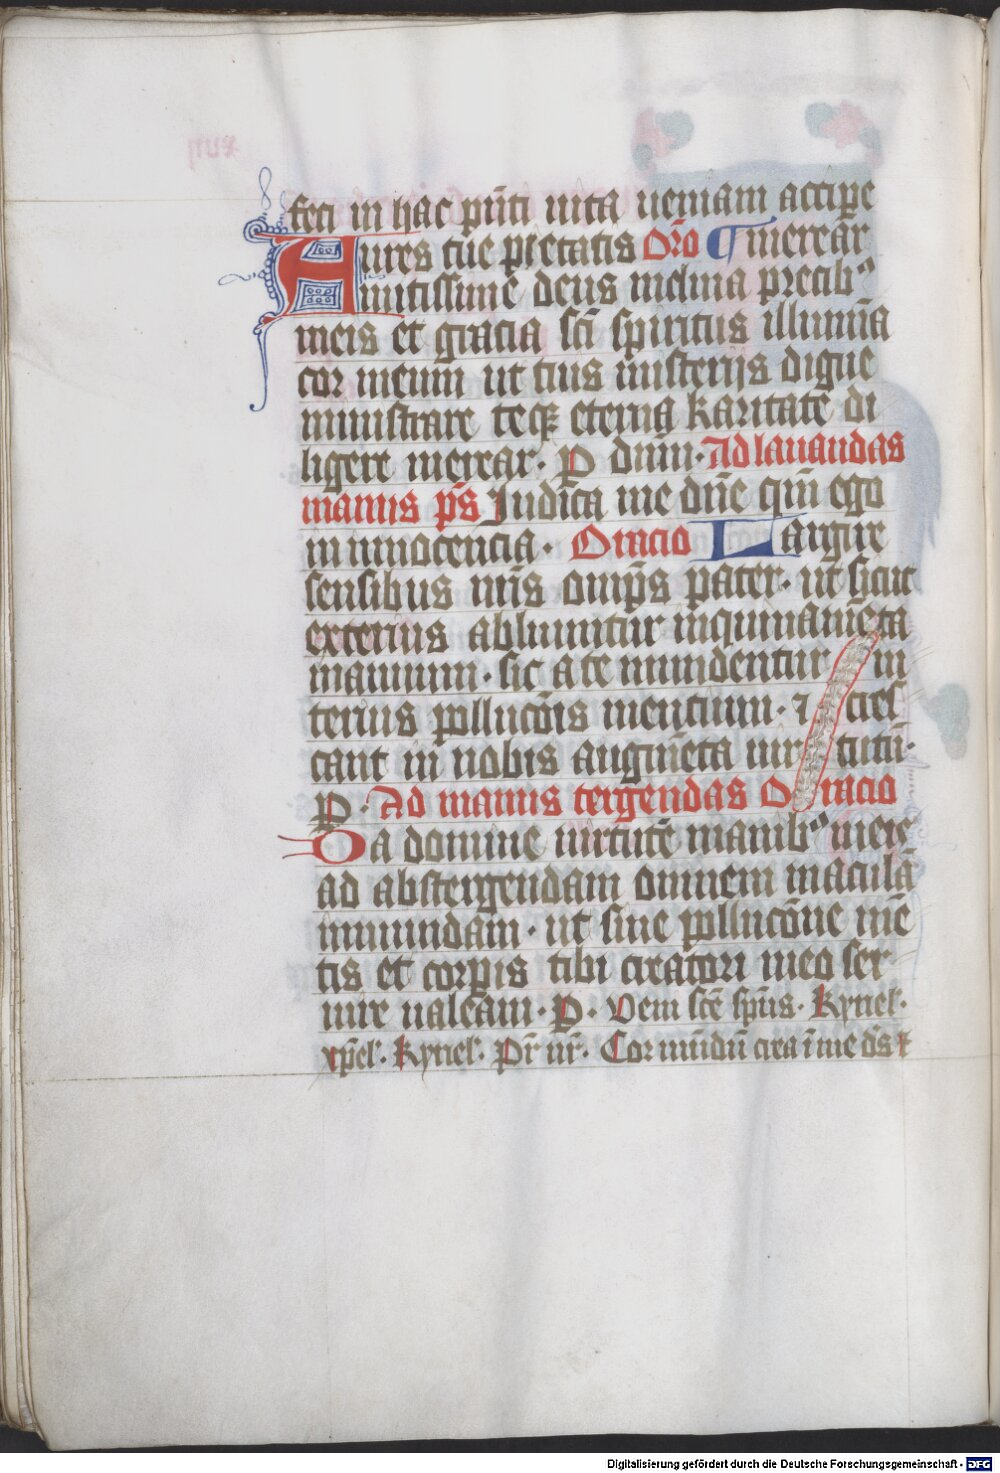 feci in hac pn̄ti uita ueniam accipe
Aures tue pietatis Or̄o ¶ merear
mitissime deus inclina precibꝰ
meis et gracia sc̄i spiritus illumīa
cor meum ut tuis misterijs digne
ministrare teqꝫ eterna karitate di
ligere merear. P dn̄m. Ad lauandas
manus ps̄ Iudica me dn̄e qm̄ ego
in innocencia. Oracio Largire
sensibus nr̄is omp̄s pater. ut sicut
exterius abluuntur inquinamēta
manuum. sic a te mundentur in
terius pollucōis mencium. ⁊ cres
cant in nobis augmēta uir tutū.
P. Ad manus tergendas Oracio
Da domine uirtutē manibꝰ meis
ad abstergendam omnem maculā
inmundam. ut sine pollucōne mē
tis et corpis tibi creatori meo ser
uire ualeam. P. Veni sc̄e sp̄us. Kyriel.
xp̄el. Kyriel. Pr̄ nr̄. Cor mūdū crea ī me ds̄ ⁊
xuij
Digitalisierung gefördert durch die Deutsche Forschungsgemeinschaft - DFG